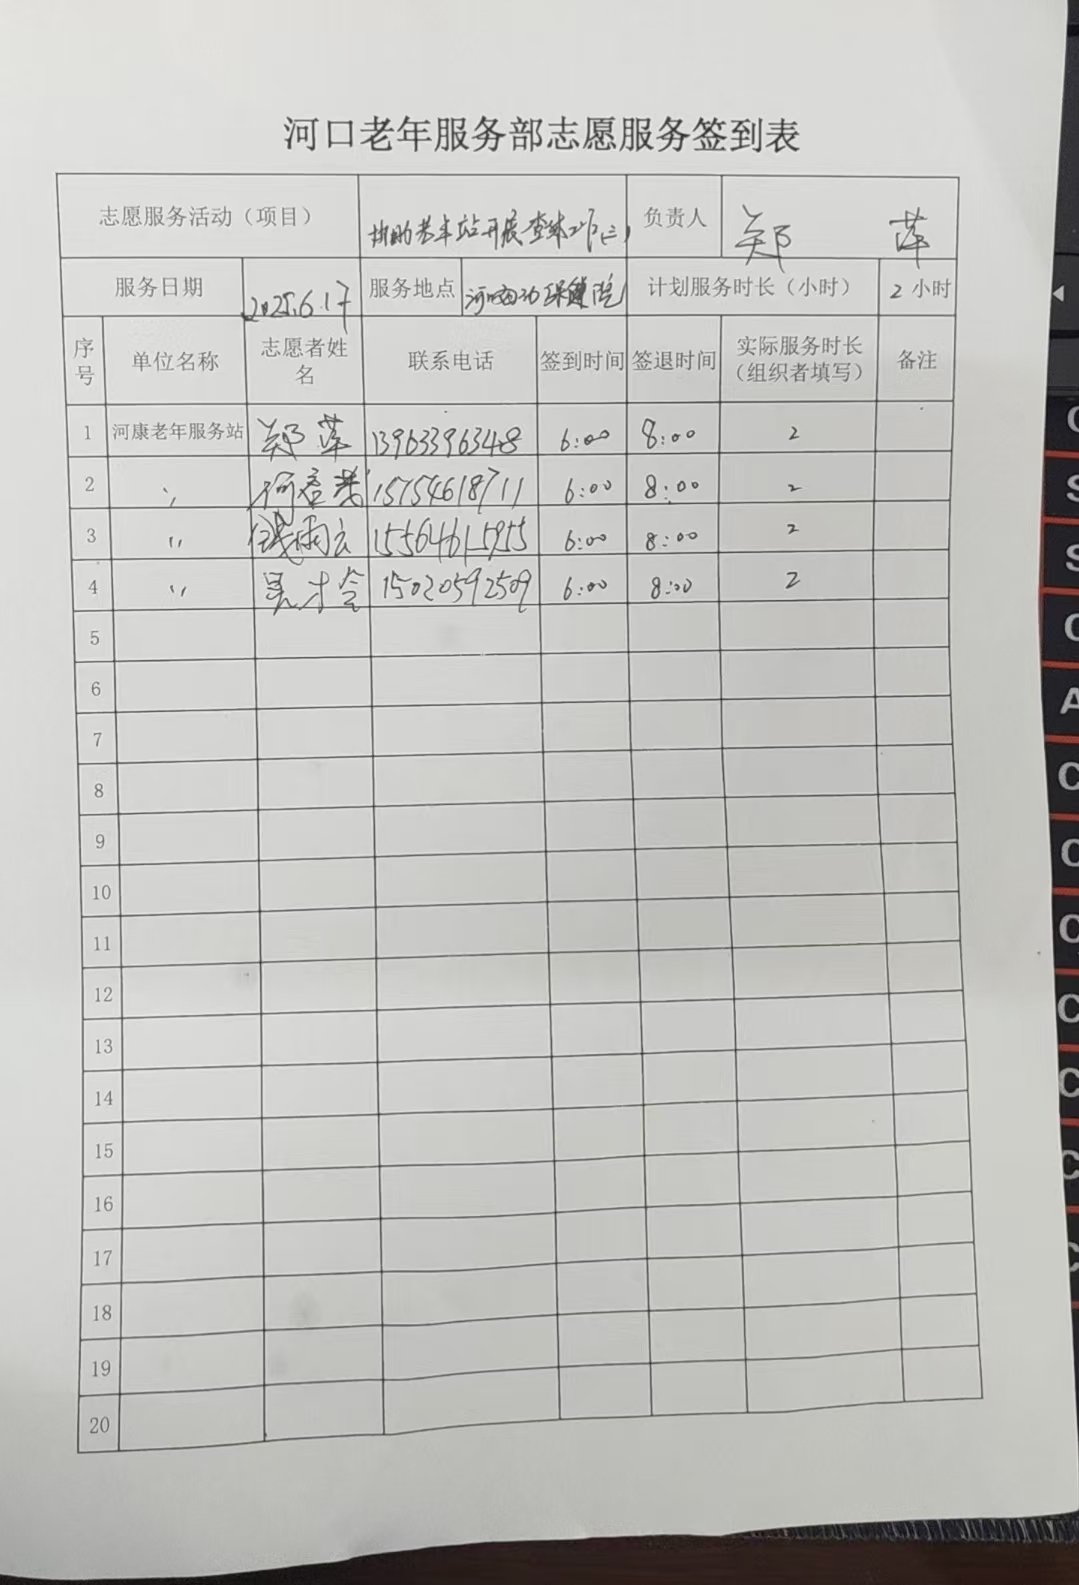 河口老年服务部志愿服务签到表
志愿服务活动（项目） 协助老年站开展查体工作(三) 负责人 郑 萍
服务日期 2025.6.17 服务地点 河口 保健院 计划服务时长（小时） 2小时
序号 单位名称 志愿者姓名 联系电话 签到时间 签退时间 实际服务时长（组织者填写） 备注
1 河康老年服务站 郑萍 13963396348 6:00 8:00 2
2 〃 15754618711 6:00 8:00 2
3 〃 钱雨云 15564615955 6:00 8:00 2
4 〃 吴才令 15020592509 6:00 8:00 2
5
6
7
8
9
10
11
12
13
14
15
16
17
18
19
20
C
S
S
C
A
C
C
C
C
C
C
C